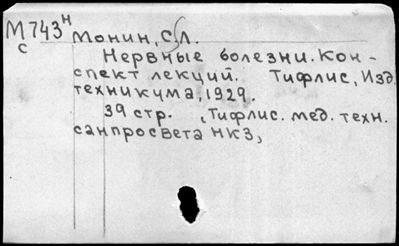 М743н Монин, С.Л.
с
Нервные болезни. Кон-
спект лекций. Тифлис, Изд.
техникума, 1929.
39 стр. , Тифлис. мед. техн.
санпросвета НКЗ,